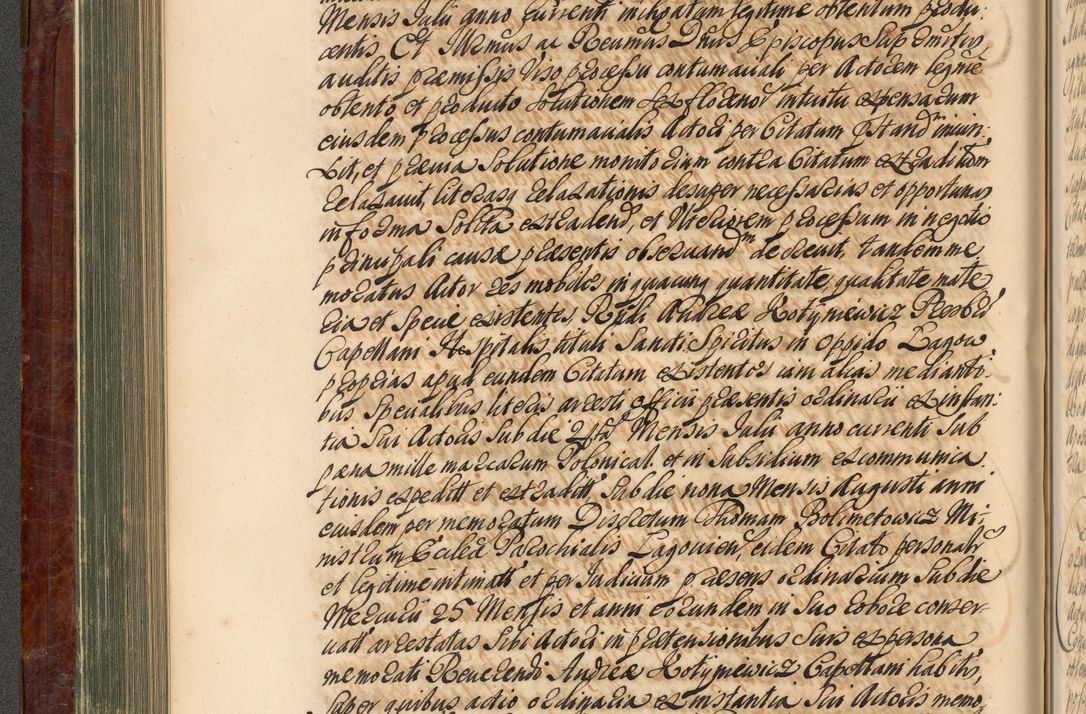 Mensis Julii anno currenti in hypatum legitime obtentum produ:
centis Et Illrmus ac Reumus Dnus Episcopus Sup Emeritus
auditis præmissis Viso processu contumaciali per Actorem legitie
obtento et producto solutionem sex florenor intuitu expensarum
eiusdem processus contumacialis Actori per Citatum præstand iniun:
xit, et prævia Solutione monitorium contra Citatum extraditum
relaxavit, literasq relaxationis desuper necessarias et opportunas
in forma Solita extradend, et Ulteriorem processum in negotio
principali causæ præsentis observandm decrevit, tandem me
moratus Actor res mobiles in quacunq quantitate, qualitate mate
ria et specie existentes Rndi Andreæ Kotyniewicz Presbri
Capellani Hospitalis tituli Sancti Spiritus in oppido Lagow
proprias apud eundem Citatum existentes iam alias mediante
bus specialibus literis aresti officii præsentis ordinarii ex instan:
tia Sui Actoris sub die 24ta Mensis Julii anno currenti sub
pæna mille marcarum Polonical. et in subsidium excommunica
tionis expeditt et extraditt, sub die nona Mensis Augusti anni
eiusdem per memoratum Discretum Thomam Bolimetowicz Mi-
nistrum Eccleæ Parochialis Lagoviens eidem Citato personalr
et legitime intimatt et per Judicium præsens ordinarium sub die
Mercurii 25 Mensis et anni eorundem in suo robore conser-
vatt arrestatas Sibi Actori in prætensionibus suis ex persona
memorati Reverendi Andreæ Kotyniewicz Capellani habitis,
super quibus actio ordinaria ex instantia Sui Actoris memo,